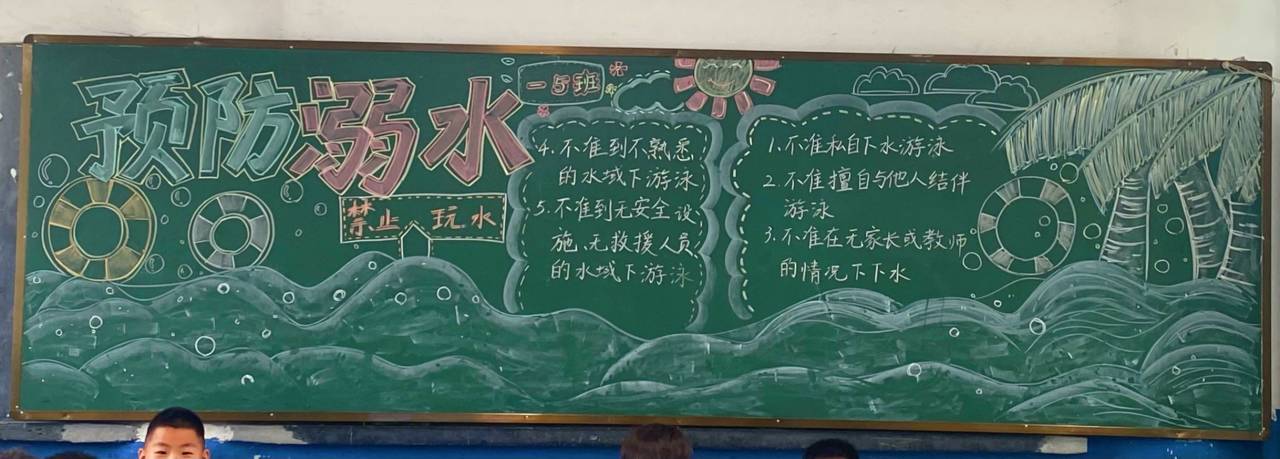 预防溺水
一5班
禁止 玩水
4.不准到不熟悉
的水域下游泳
5.不准到无安全设
施、无救援人员
的水域下游泳
1.不准私自下水游泳
2.不准擅自与他人结伴
游泳
3.不准在无家长或教师
的情况下下水